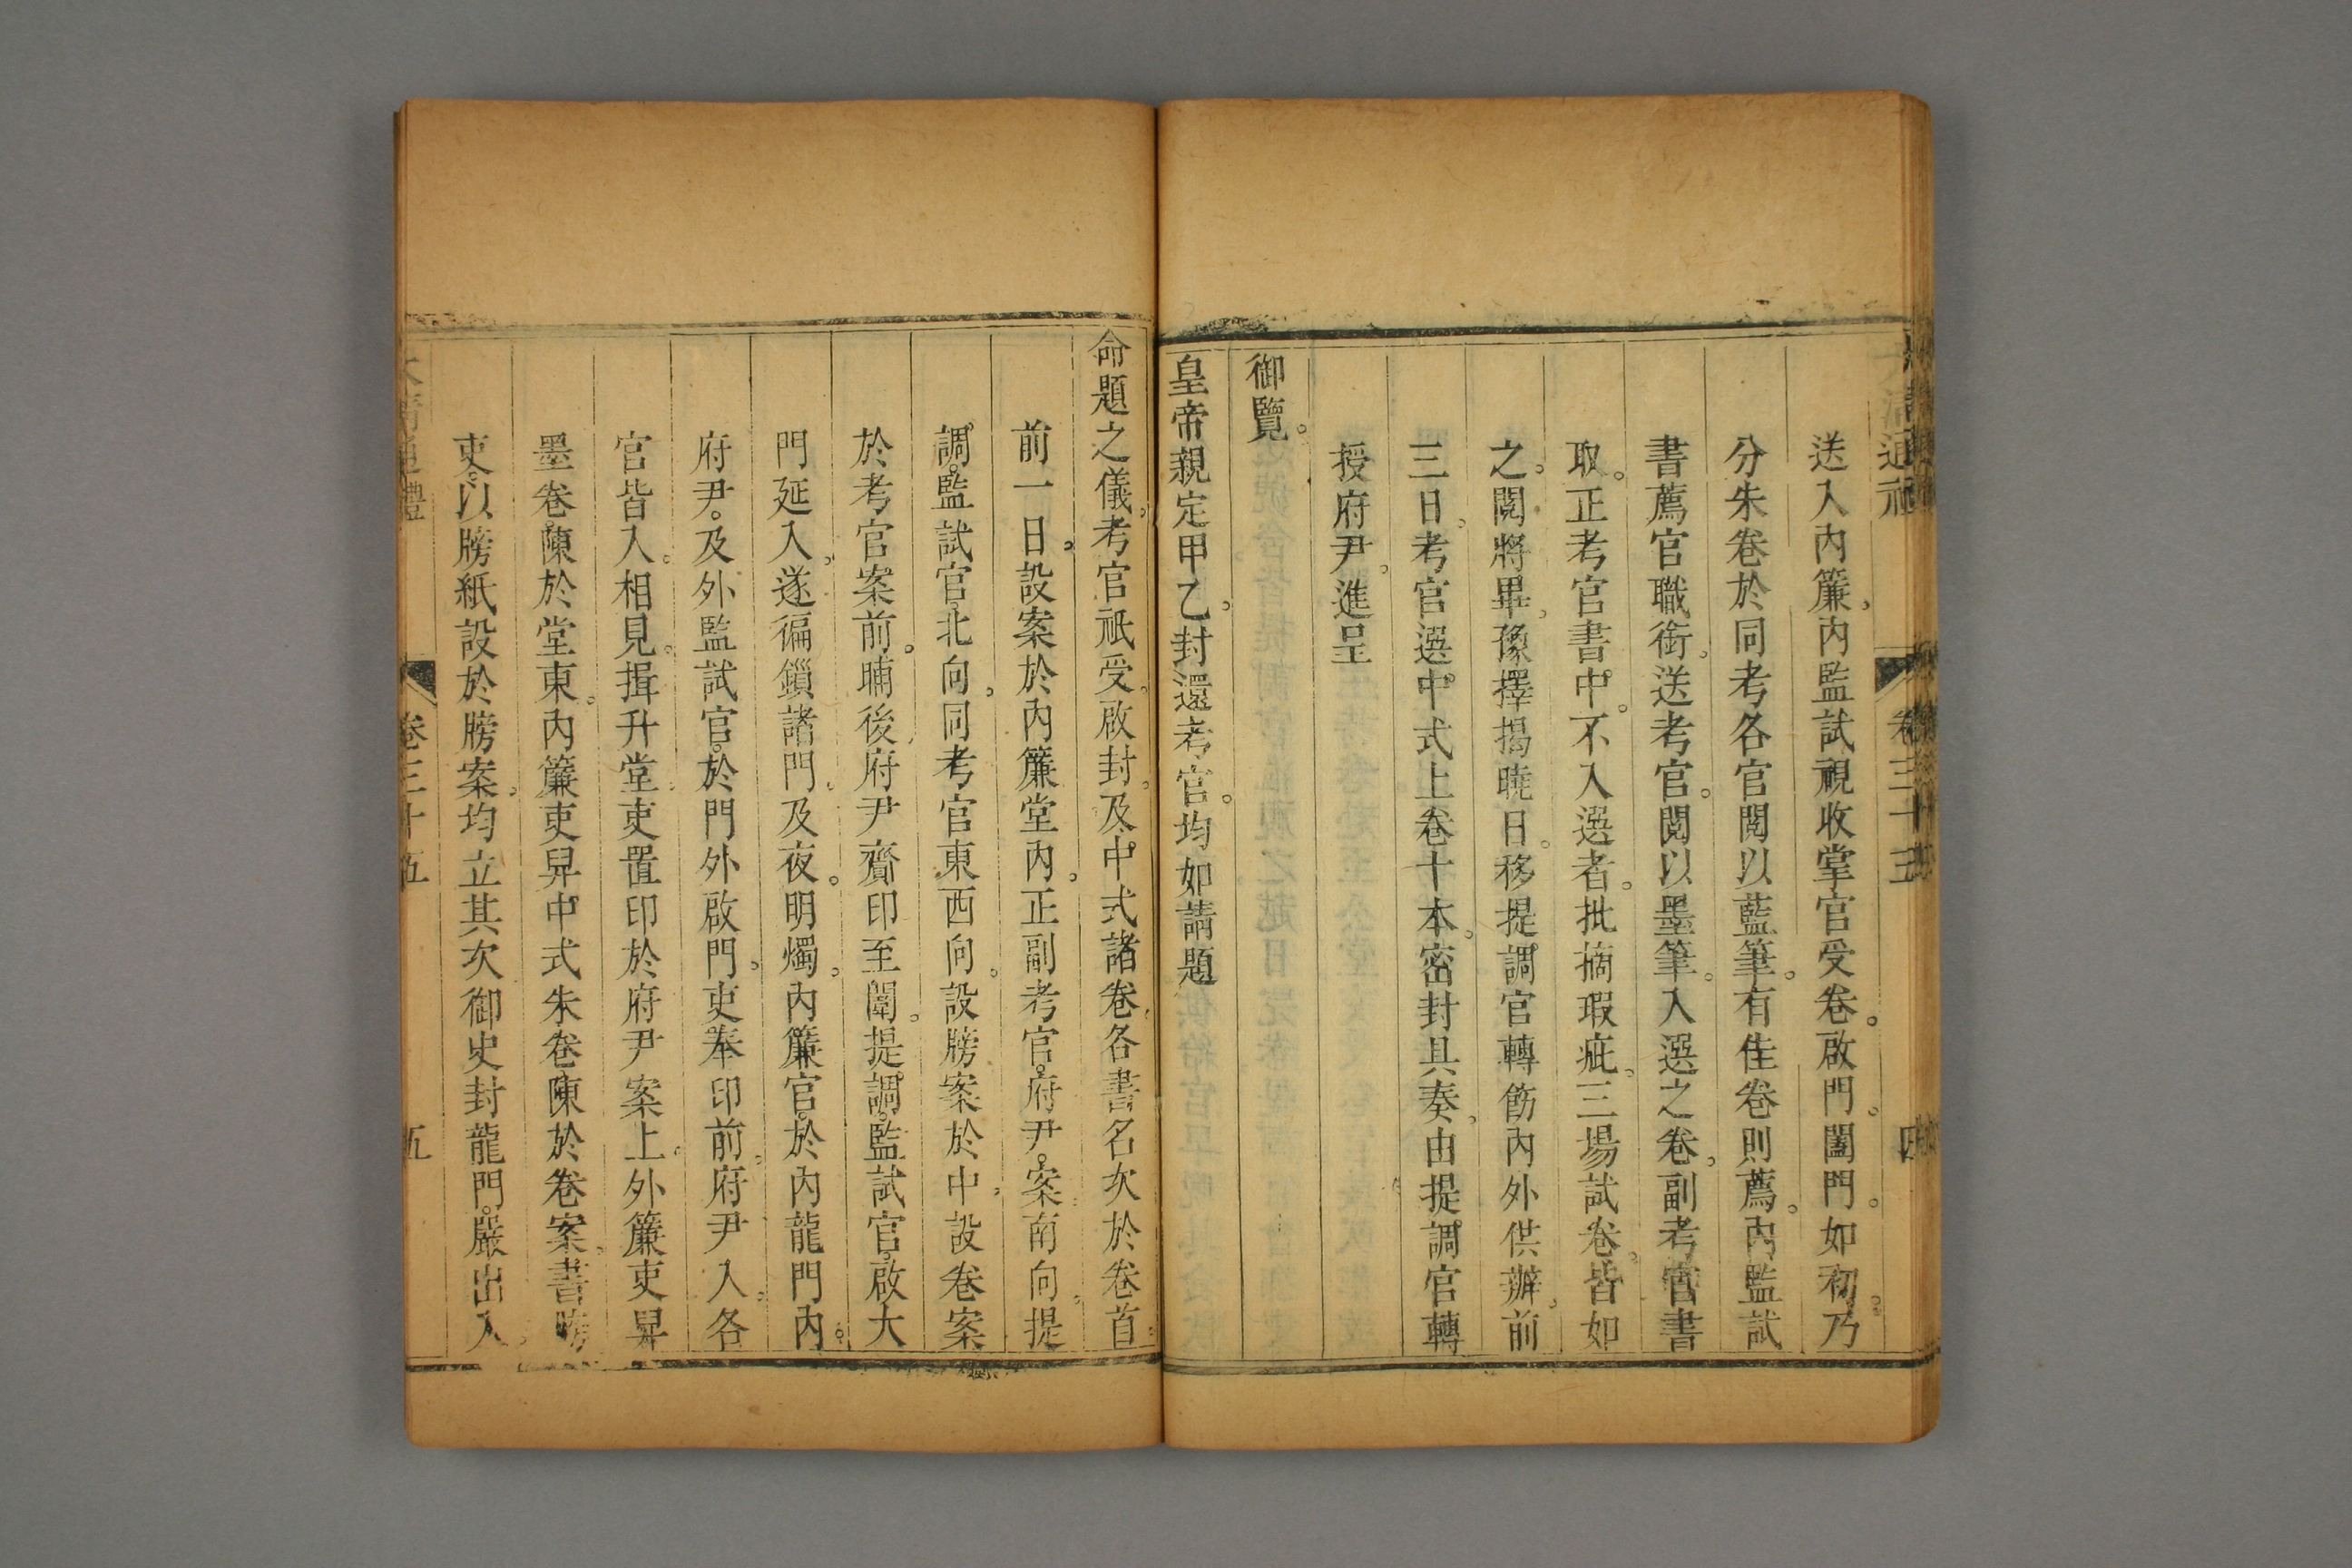 送入內簾。內監試視收掌官受卷。啟門。闔門。如初。乃
分朱卷於同考各官閱以藍筆。有佳卷則薦。內監試
書薦官職銜。送考官。閱以墨筆。入選之卷。副考官書
取。正考官書中。不入選者。批摘瑕疵。三場試卷。皆如
之。閱將畢。豫擇揭曉日。移提調官轉飭內外供辦。前
三日。考官選中式上卷十本。密封具奏。由提調官轉
授府尹。進呈
御覽。
皇帝親定甲乙。封還考官。均如請題
命題之儀。考官祇受。啟封。及中式諸卷。各書名次於卷首。
前一日。設案於內簾堂內。正副考官。府尹。案南向。提
調。監試官。北向。同考官東西向。設牓案於中。設卷案
於考官案前。晡後府尹齎印至闈。提調。監試官。啟大
門延入。遂徧鎖諸門。及夜。明燭。內簾官。於內龍門內。
府尹。及外監試官。於門外啟門。吏奉印前。府尹入。各
官皆入。相見。揖升堂。吏置印於府尹案上。外簾吏舁
墨卷。陳於堂東。內簾吏舁中式朱卷。陳於卷案。書牓
吏。以牓紙設於牓案。均立其次御史封龍門。嚴出入。
卷三十五
五